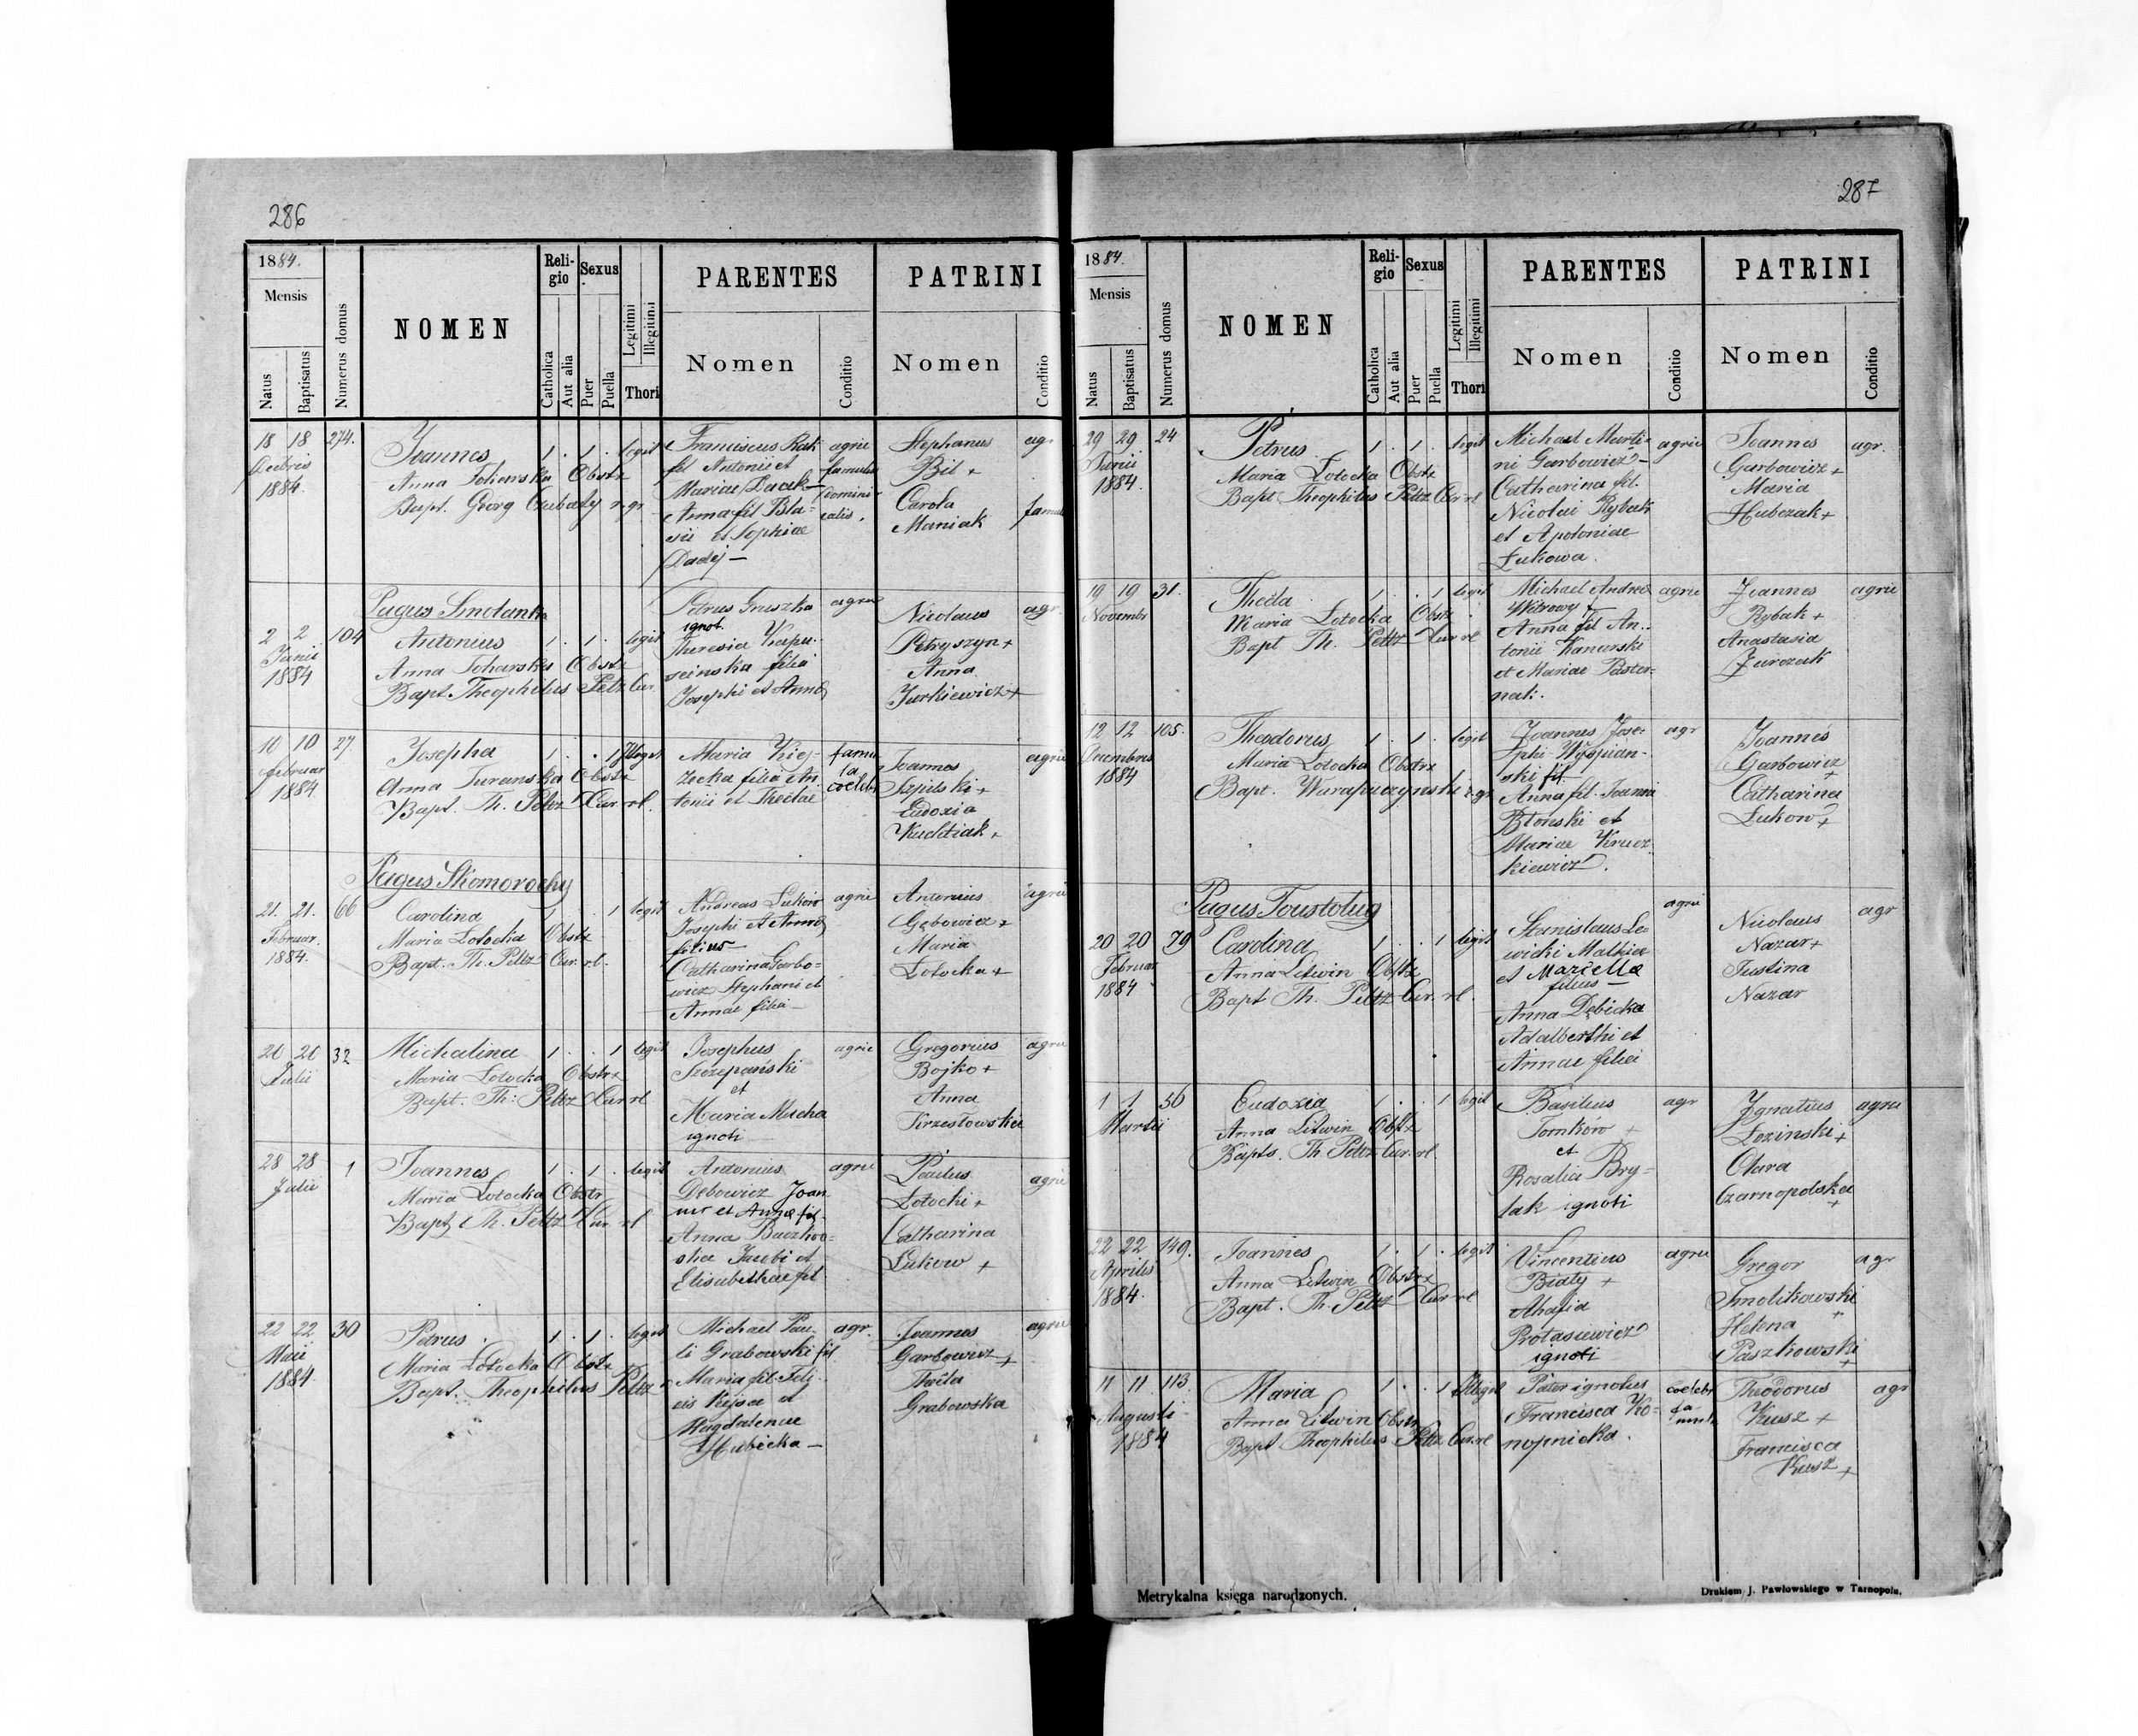 286
1884.
Mensis
Natus
Baptisatus
Numerus domus
NOMEN
Reli-
gio
Catholica
Aut alia
Sexus
Puer
Puella
Legitimi
Illegitimi
Thori
PARENTES
Nomen
Conditio
PATRINI
Nomen
Conditio
18 18 274.
1884.
Joannes
1 . 1 . legit
Anna Obstr
Bapt. Georg Czubaty r. gr.
Franciscus
fil Antonii et
Mariae
Anna fil Bla=
sii et Sophiae
Dadej —
agric
famulus
domini-
calis.
Stephanus
Bil +
Carola
Maniak
agr
famul
Pagus Smolanka
2 2 104
Junii
1884
Antonius
1 . 1 . legit
Anna Obstr
Bapt. Theophilus Peltz Cur.
Petrus Gruszka
ignot.
Theresia
filia
Josephi et Annæ
agric
Nicolaus
Petryszyn +
Anna
Jurkiewicz +
agr
10 10 27
Februar
1884
Josepha
1 . . 1 Illegit
Anna Obstr
Bapt. Th. Peltz Cur. rl.
Maria
filia An
tonii et Theclae
famu
la
coelebs
Joannes
Szpilski +
Eudoxia
Kuchtiak +
agric
Pagus Skomorochy
21. 21. 66
Februar.
1884.
Carolina
1 . . 1 legit
Maria Lotocka Obstr
Bapt. Th. Peltz Cur. rl.
Andreas Lukow
Josephi et Annæ
filius —
Catharina Garbo=
wicz Stephani et
Annae filia —
agric
Antonius
Gębowicz +
Maria
Lotocka +
agric
20 20 32
Julii
Michalina
1 . . 1 legit
Maria Lotocka Obstr
Bapt. Th: Peltz Cur rl
Josephus
Szczepański
et
Maria Mucha
ignoti
agric
Gregorius
Bojko +
Anna
Krzesłowska
agric
28 28 1
Julii
Joannes
1 . 1 . legit
Maria Lotocka Obstr
Bapt Th. Peltz Cur. rl
Antonius
Dębowicz Joan
nis et Annæ fil.
Anna Baczkow=
ska Jacobi et
Elisabethae fil
agric
Paulus
Lotocki +
Catharina
Lukow +
agric
22 22 30
Maii
1884
Petrus
1 . 1 . legit
Maria Lotocka Obstr
Bapt. Theophilus Peltz
Michael Pau-
li Grabowski fil
Maria fil. Feli-
cis Kijsa et
Magdalenae
Hubicka —
agr.
Joannes
Garbowicz +
Thecla
Grabowska
agric
287
1884.
Mensis
Natus
Baptisatus
Numerus domus
NOMEN
Reli-
gio
Catholica
Aut alia
Sexus
Puer
Puella
Legitimi
Illegitimi
Thori
PARENTES
Nomen
Conditio
PATRINI
Nomen
Conditio
29 29 24
Junii
1884
Petrus
1 . 1 . legit
Maria Lotocka Obstr
Bapt Theophilus Peltz Cur rl
Michael Marti-
ni Garbowicz —
Catharina fil.
Nicolai Rybak
et Apoloniae
Lukowa.
agric
Joannes
Garbowicz +
Maria
Hubczak +
agr.
19 19 31.
Novembr
Thecla
1 . . 1 legit
Maria Lotocka Obstr
Bapt Th. Peltz Cur rl
Michael Andreæ
Anna fil An-
tonii Kanarski
et Mariae Paster-
nak.
agric
Joannes
Rybak +
Anastasia
Jurczak
agric
12 12 105.
Decembris
1884
Theodorus
1 . 1 . legit
Maria Lotocka Obstr
Bapt.
Joannes Jose-
phi Wyspian-
ski fil.
Anna fil. Joannis
Błoński et
Mariae Krucz
kiewicz.
agr
Joannes
Garbowicz
+
Catharina
Lukow +
Pagus Toustoług
20 20 79
Februar
1884
Carolina
1 . . 1 legit
Anna Litwin Obstr
Bapt Th. Peltz Cur. rl.
Stanislaus Le-
wicki Mathiæ
et Mariellæ
filius —
Anna Dębicka
Adalberthi et
Annae filia
agric
Nicolaus
Nazar +
Justina
Nazar
agr
1 1 56
Martii
Eudoxia
1 . . 1 legit
Anna Litwin Obstr
Bapts. Th Peltz Cur. rl
Basilius
Tomków +
et
Rosalia Bry-
lak ignoti
agr
Ignatius
Lozinski +
Clara
Czarnopolska
+
agric
22 22 149.
Aprilis
1884.
Joannes
1 . 1 . legit
Anna Litwin Obstr
Bapt. Th. Peltz Cur rl
Vincentius
Biały +
Ahafia
Protasiewicz
ignoti
agric
Gregor
Smolikowski
+
Helena
Paszkowski
+
agr
11 11 113.
Augusti
1884
Maria
1 . . 1 Illegit
Anna Litwin Obstr
Bapt Theophilus Peltz Cur. rl
Pater ignotus
Francisca Ko-
nopnicka.
coelebs
fa-
mula
Theodorus
Kusz +
Francisca
Kusz +
agr
Metrykalna księga narodzonych.
Drukiem J. Pawłowskiego w Tarnopolu.